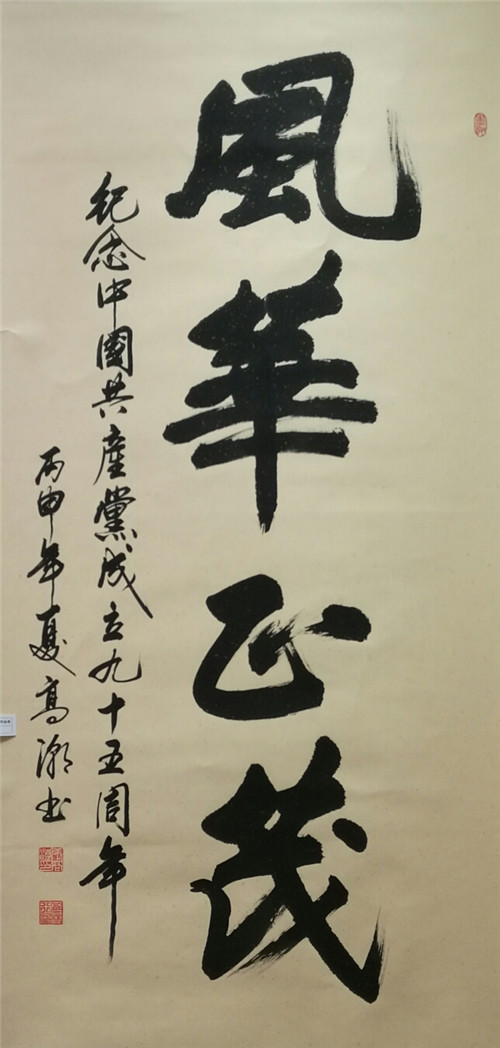 風華正茂
紀念中國共產黨成立九十五周年
丙申年夏高潮书